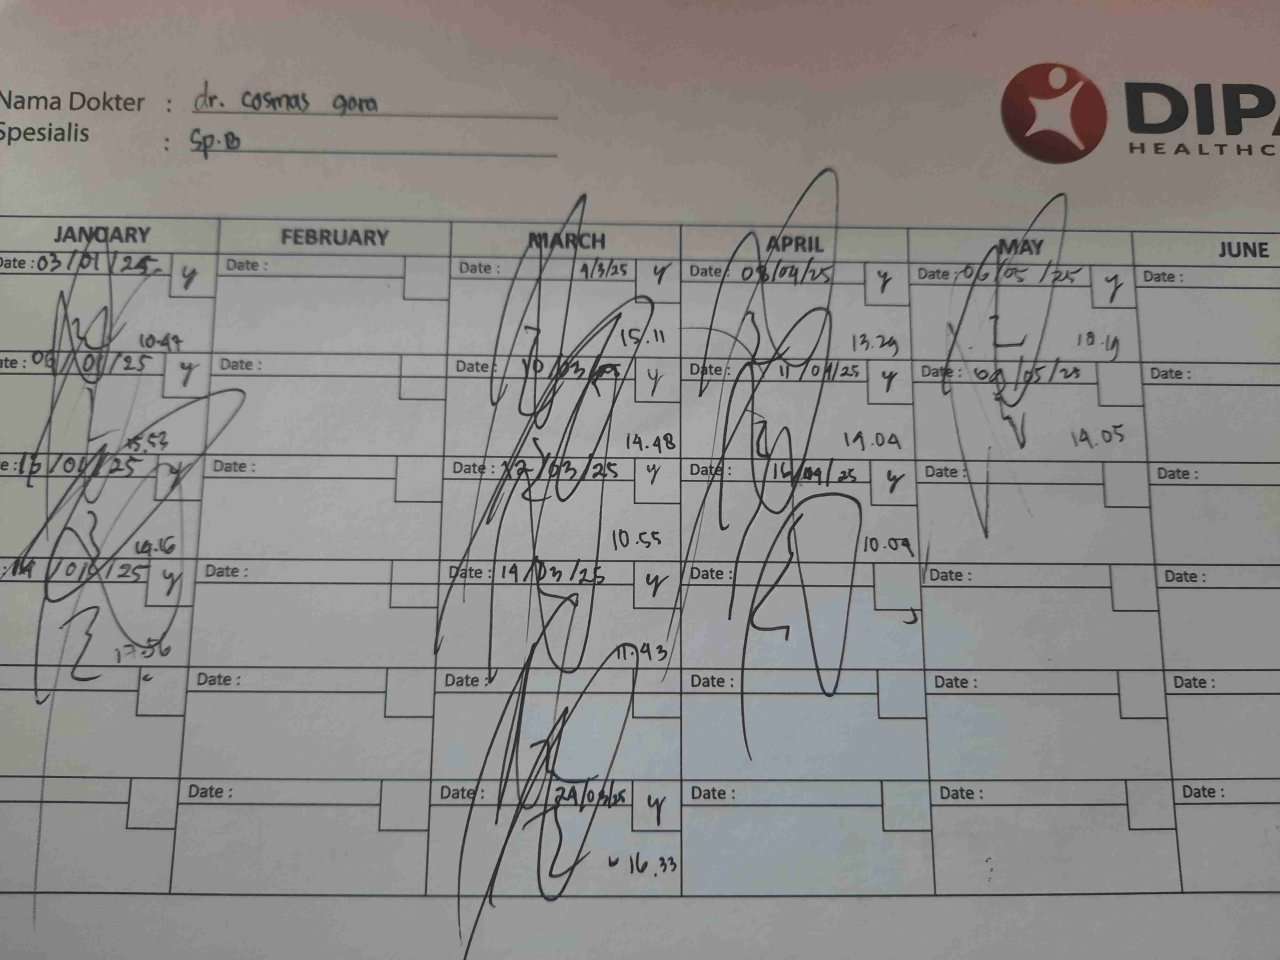 Nama Dokter : dr. cosmas gora
Spesialis : Sp.B
DIPA
HEALTHC
JANUARY FEBRUARY MARCH APRIL MAY JUNE
Date : 03/01/25 y Date : Date : 4/3/25 y Date : 08/04/25 y Date : 06/05/25 y Date :
10.47 15.11 13.29 10.19
ate : 06/01/25 y Date : Date : 10/03/25 y Date : 11/04/25 y Date : /05/25 Date :
15.53 14.48 14.04 14.05
e : 13/01/25 y Date : Date : 12/03/25 y Date : 16/04/25 y Date : Date :
14.16 10.55 10.09
/01/25 y Date : Date : 19/03/25 y Date : Date : Date :
17.56 11.43
Date : Date : Date : Date : Date :
Date : Date : 24/03/25 y Date : Date : Date :
16.33